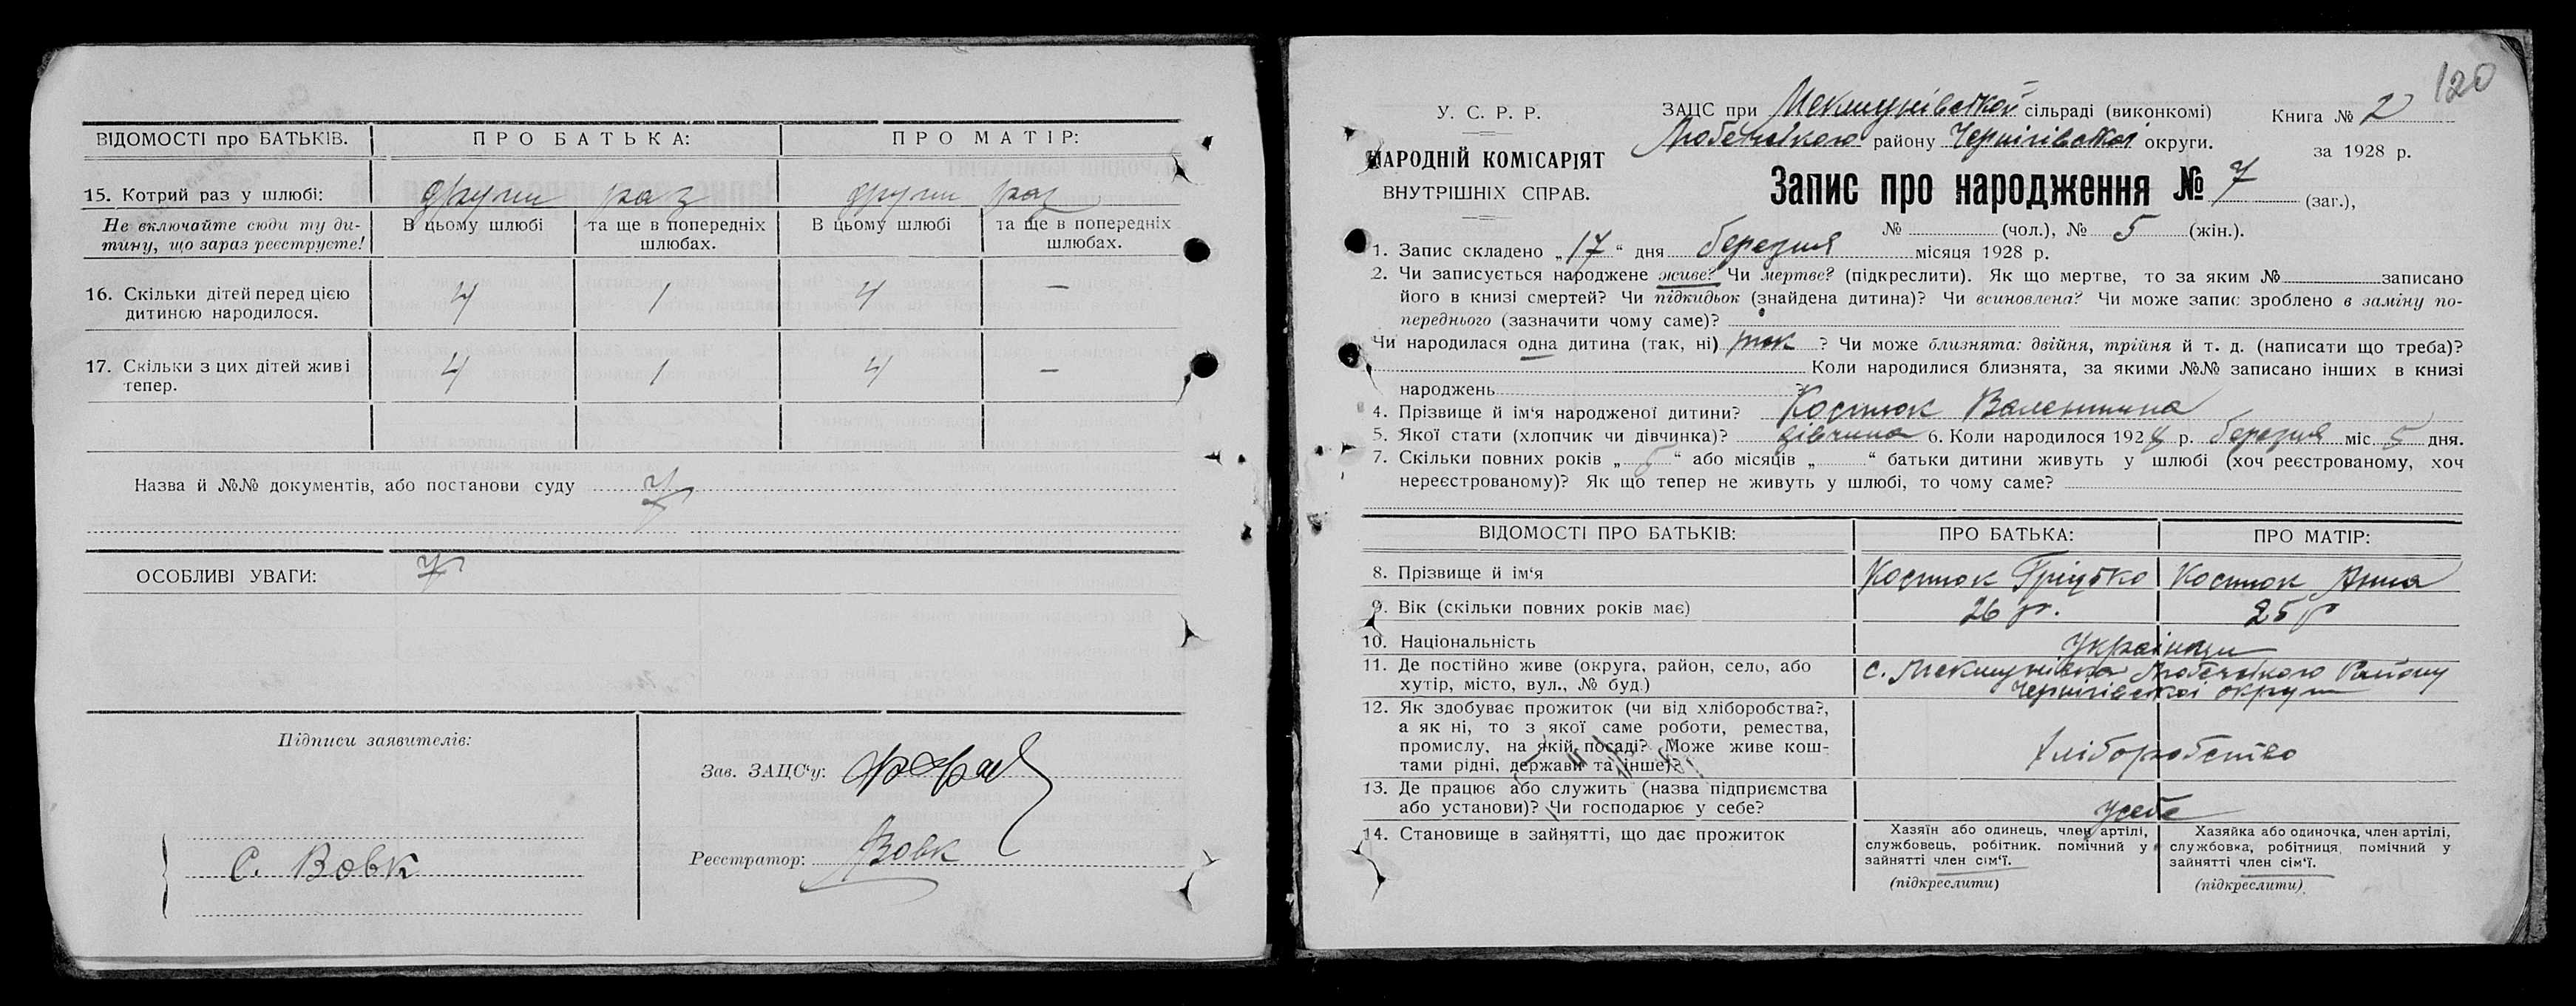 ВІДОМОСТІ про БАТЬКІВ. ПРО БАТЬКА: ПРО МАТІР:
15. Котрий раз у шлюбі: други раз други раз
Не включайте сюди ту ди-
тину, що зараз реєструєте!
В цьому шлюбі
та ще в попередніх
шлюбах.
В цьому шлюбі
та ще в попередніх
шлюбах.
16. Скільки дітей перед цією
дитиною народилося.
4 1 4 —
17. Скільки з цих дітей живі
тепер.
4 1 4 —
Назва й №№ документів, або постанови суду
ОСОБЛИВІ УВАГИ:
Підписи заявителів:
С. Вовк
Зав. ЗАЦС‘у:
Реєстратор: Вовк
120
У. С. Р. Р.
НАРОДНІЙ КОМІСАРІЯТ
ВНУТРІШНІХ СПРАВ.
ЗАЦС при сільраді (виконкомі)
Любечського району Чернігівської округи.
Книга № 2
за 1928 р.
Запис про народження № 7 (заг.),
№ (чол.), № 5 (жін.).
1. Запис складено „17“ дня березня місяця 1928 р.
2. Чи записується народжене живе? Чи мертве? (підкреслити). Як що мертве, то за яким № записано
його в книзі смертей? Чи підкидьок (знайдена дитина)? Чи всиновлена? Чи може запис зроблено в заміну по-
переднього (зазначити чому саме)?
Чи народилася одна дитина (так, ні) так ? Чи може близнята: двійня, трійня й т. д. (написати що треба)?
Коли народилися близнята, за якими №№ записано інших в книзі
народжень
4. Прізвище й ім‘я народженої дитини? Костюк Валентина
5. Якої стати (хлопчик чи дівчинка)? дівчина 6. Коли народилося 1928 р. березня міс. 5 дня.
7. Скільки повних років „5“ або місяців „ “ батьки дитини живуть у шлюбі (хоч реєстрованому, хоч
нереєстрованому)? Як що тепер не живуть у шлюбі, то чому саме?
ВІДОМОСТІ ПРО БАТЬКІВ: ПРО БАТЬКА: ПРО МАТІР:
8. Прізвище й ім‘я Костюк Гріцько Костюк Анна
9. Вік (скільки повних років має) 26 р. 25 р
10. Національність Українци
11. Де постійно живе (округа, район, село, або
хутір, місто, вул., № буд.)
с. Любечського Району
Чернігівської округи
12. Як здобуває прожиток (чи від хліборобства?,
а як ні, то з якої саме роботи, ремества,
промислу, на якій посаді? Може живе кош-
тами рідні, держави та інше)?
хліборобство
13. Де працює або служить (назва підприємства
або установи)? Чи господарює у себе?
усебе
14. Становище в зайнятті, що дає прожиток
Хазяїн або одинець, член артілі,
службовець, робітник, помічний у
зайнятті член сім‘ї.
(підкреслити)
Хазяйка або одиночка, член артілі,
службовка, робітниця, помічний у
зайнятті член сім‘ї.
(підкреслити)